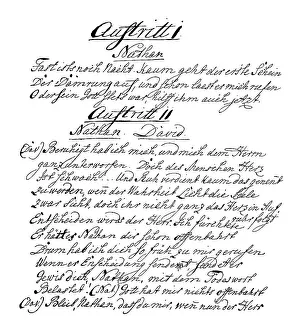 Auftritt I
Nathan
Fast ists noch Nacht. kaum geht der erste Schein
Der Dämrung auf, und schon laest er mich rufen
O der sein Gott stets war, hilf ihm auch jetzt.
Auftritt II
Nathan. David.
(Dav) Beruhigt hab ich mich, und mich dem Herrn
ganz unterworfen. Doch des Menschen Herz
Ist schwach ... Und Muth verdient kaum das genent
zu werden, wen der Wahrheit Licht die Seele
zwar sieht, doch ihr nicht ganz das Herz im
Entscheiden wird der Herr. Ich fürcht
Er hätt es Nadan dir schon offenbahrt
Drum hab ich dich so früh zu mir gerufen
Wenn er Entscheidung sendet
gewis dich, Nathan, mit dem Todswort
Belastet. (Nat) Gott hat mir nicht offenbahrt
(Dav) Bleib, Nathan, daß du mir, wen nun der Herr